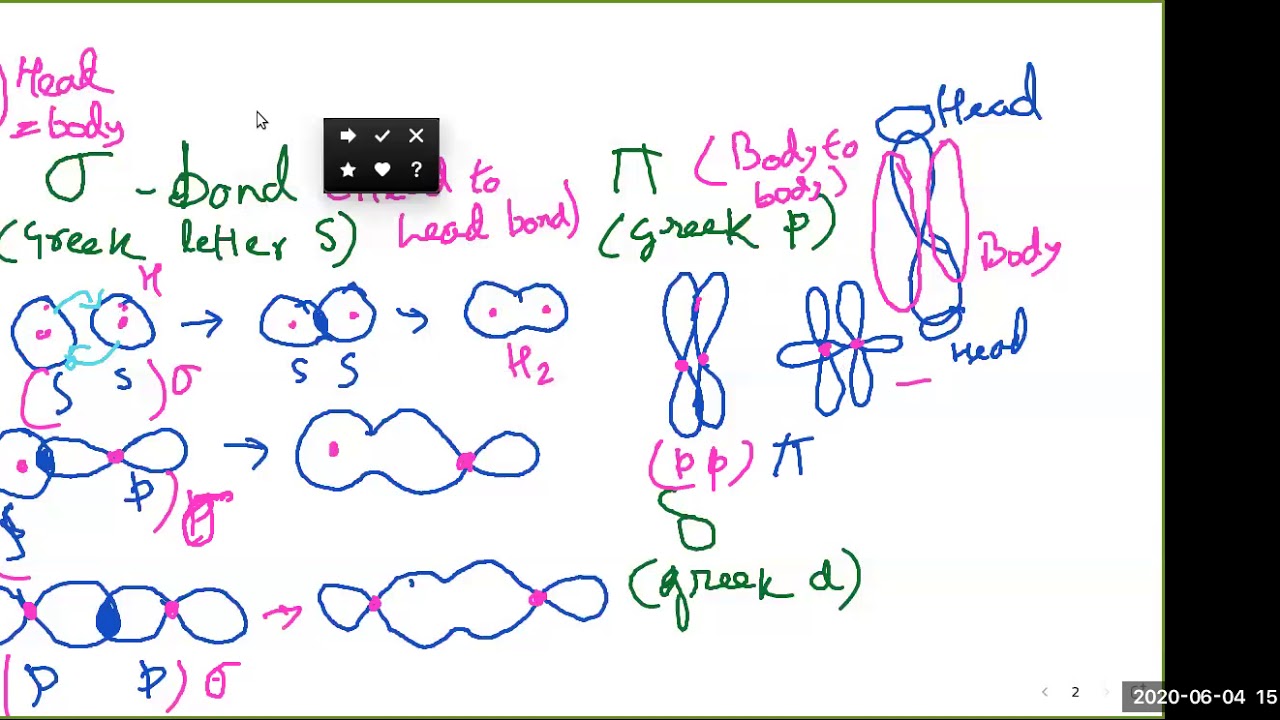 Head
= body
σ - bond
(Greek letter S)
d to
head bond)
π (Body to
body)
(Greek p)
Head
Body
Head
H
S S
S S
H2
σ
p
(p p) π
δ
(greek d)
(p p) σ
2
2020-06-04 15